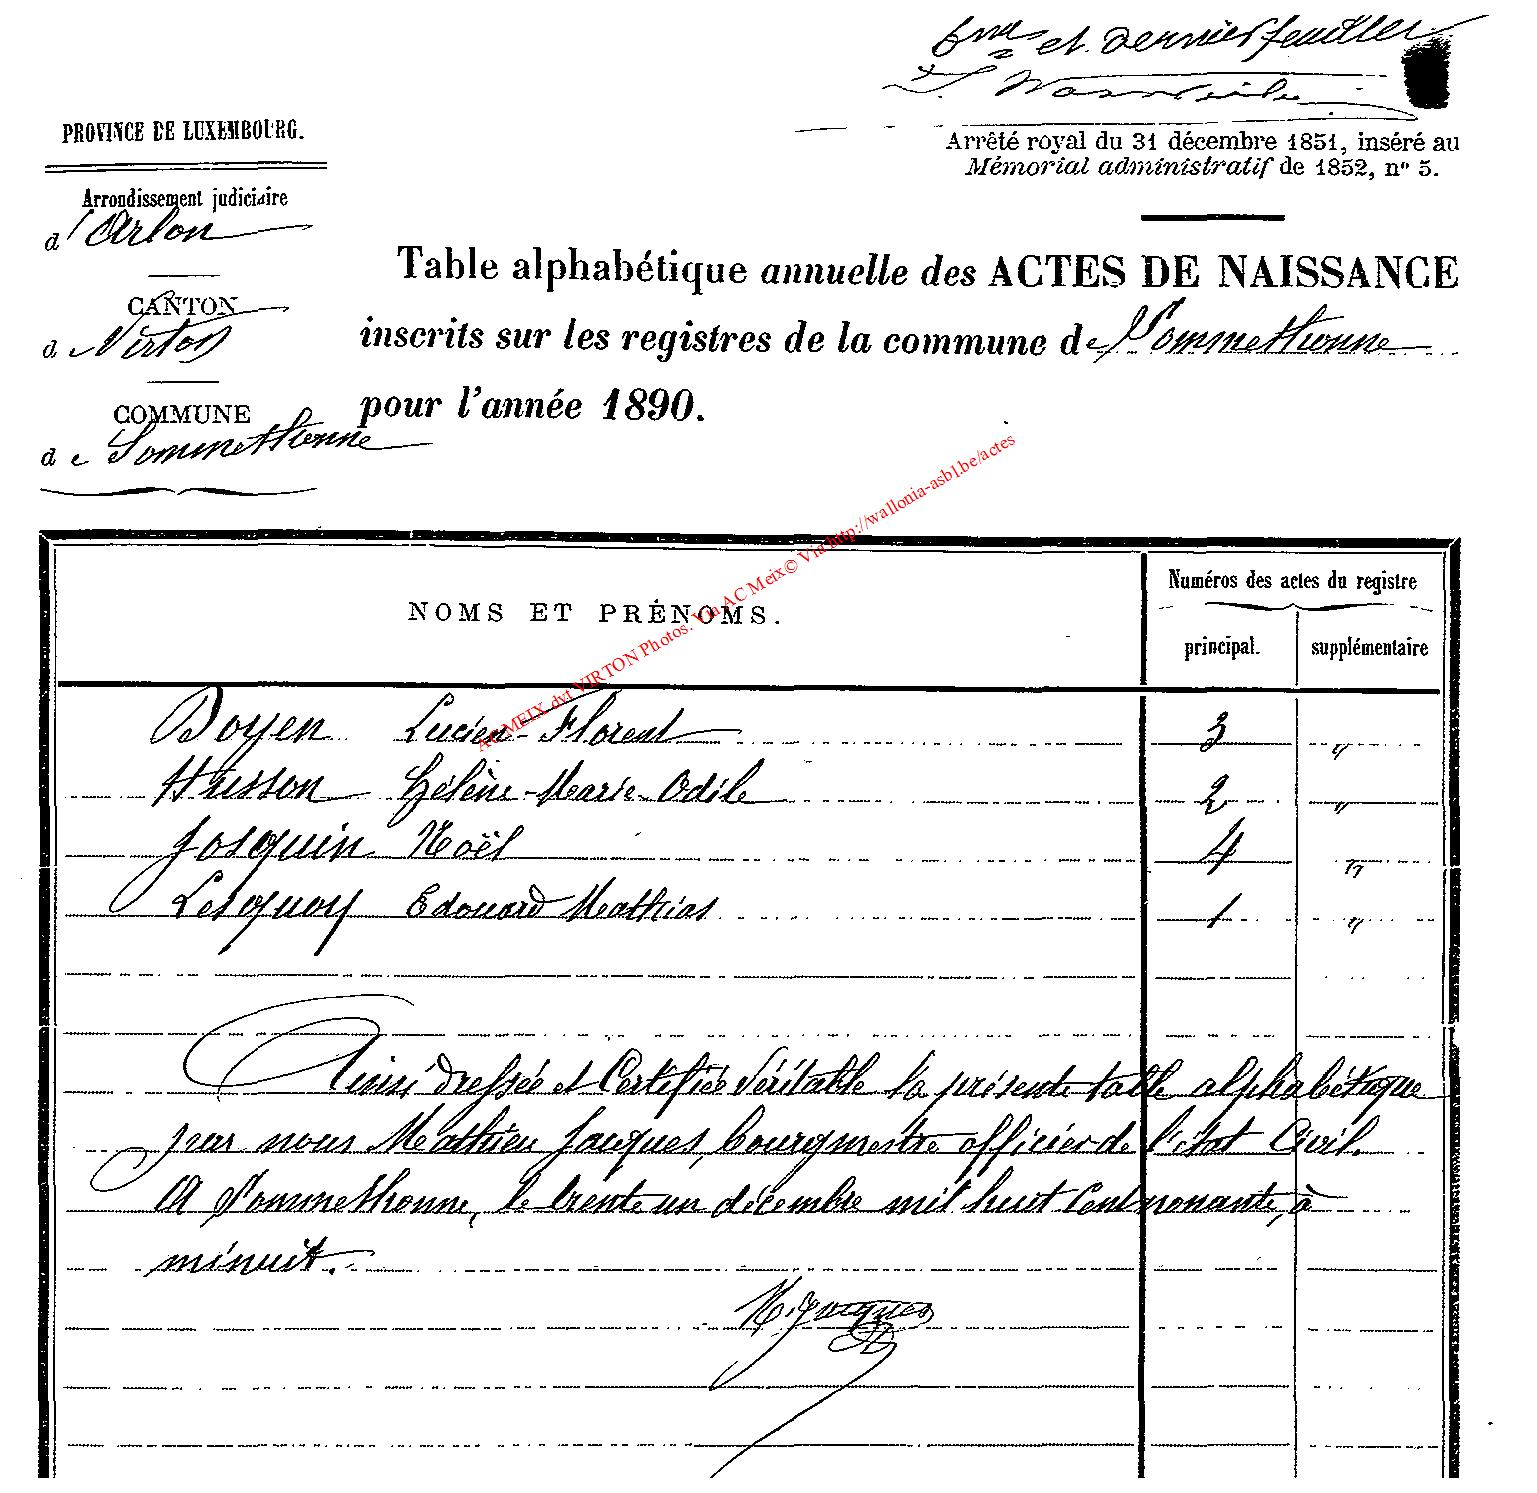 6me et dernier feuillet
PROVINCE DE LUXEMBOURG.
Arrêté royal du 31 décembre 1851, inséré au
Mémorial administratif de 1852, nº 5.
Arrondissement judiciaire
d'Arlon
CANTON
de Virton
COMMUNE
de Sommethonne
Table alphabétique annuelle des ACTES DE NAISSANCE
inscrits sur les registres de la commune de Sommethonne
pour l'année 1890.
AC MEIX dvt VIRTON Photos. Via AC Meix© Via http://wallonia-asbl.be/actes
NOMS ET PRÉNOMS.
Numéros des actes du registre
principal. supplémentaire
Boyen Lucien-Florent 3 "
Husson Hélène-Marie-Odile 2 "
Josquin Noël 4 "
Lesquoy Edouard Mathias 1 "
Ainsi dressée et Certifiée Véritable la présente table alphabétique
par nous Mathieu Jacques, bourgmestre officier de l'état Civil.
A Sommethonne, le trente un décembre mil huit Cent nonante, à
minuit.
M. Jacques